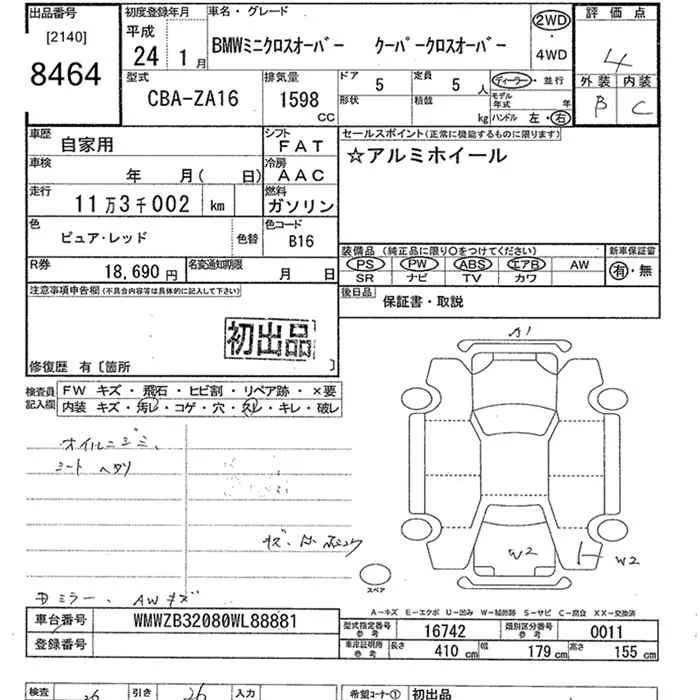 出品番号
[2140]
8464
初度登録年月
平成
24 1月
車名・グレード
BMWミニクロスオーバー クーパークロスオーバー
2WD
・
4WD
評価点
4
外装 内装
B C
型式
CBA-ZA16
排気量
1598
CC
ドア 5
形状
定員 5 人
積載 kg
ディーラー・並行
モデル年式 年
ハンドル 左・右
車歴 自家用
シフト FAT
車検 年 月( 日)
冷房 AAC
走行 11万3千002 km
燃料 ガソリン
色 ピュア・レッド
色替
色コード B16
R券 18,690 円
名変通知期限 月 日
セールスポイント(正常に機能するものに限ります)
☆アルミホイール
装備品 (純正品に限り○をつけてください)
PS PW ABS エアB AW
SR ナビ TV カワ
新車保証書
有・無
後日品 保証書・取説
注意事項申告欄(不具合内容等は具体的に記入して下さい)
初出品
修復歴 有〔箇所 〕
検査員記入欄
FW キズ・飛石・ヒビ割・リペア跡・×要
内装 キズ・汚レ・コゲ・穴・スレ・キレ・破レ
オイルニジミ、
シート ヘタリ
Dミラー、AWキズ
A1
W2
W2
スペア
A-キズ E-エクボ U-凹み W-補修跡 S-サビ C-腐食 XX-交換済
車台番号 WMWZB32080WL88881
登録番号
型式指定番号 参考 16742
類別区分番号 参考 0011
車庫証明用 参考 長さ 410 cm 幅 179 cm 高さ 155 cm
検査 26 引き 26 入力
希望コーナー① 初出品